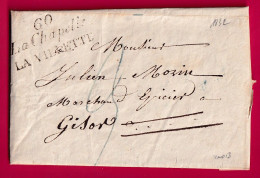 1832
60
La Chapelle
LA VILLETTE
Monsieur
Julien Morin
Marchand Epicier a
Gisors